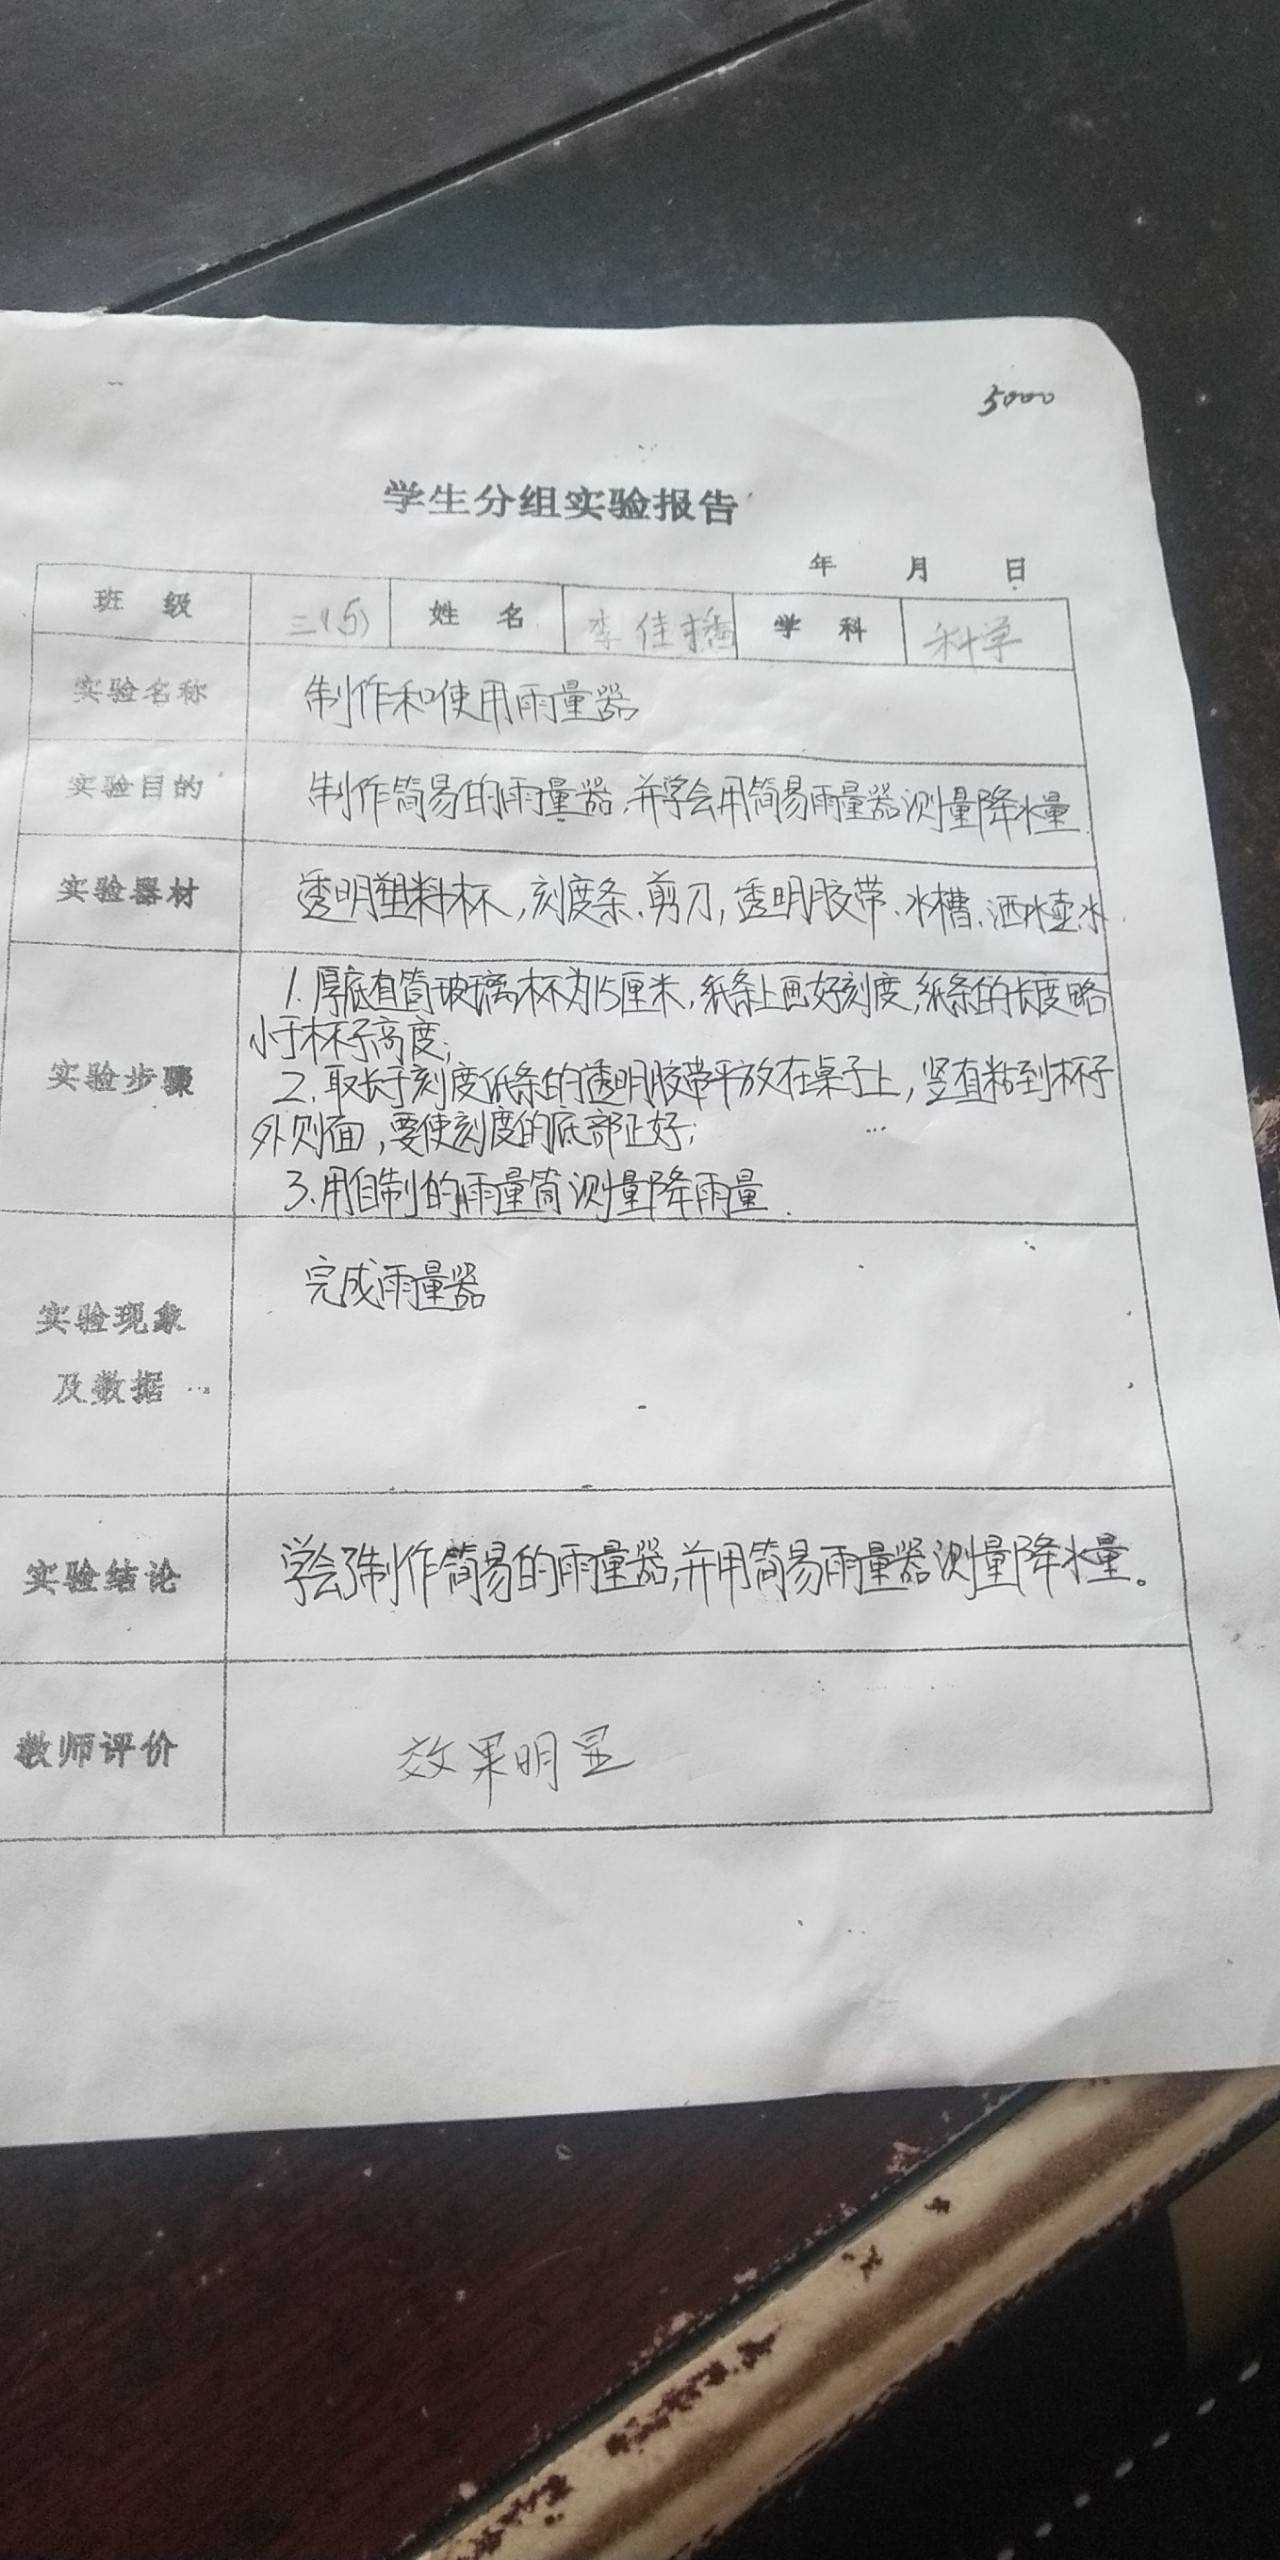 5000
学生分组实验报告
年 月 日
班 级 三(5) 姓 名 李佳 学 科 科学
实验名称 制作和使用雨量器
实验目的 制作简易的雨量器,并学会用简易雨量器测量降水量
实验器材 透明塑料杯,刻度条、剪刀,透明胶带、水槽、洒水壶、水
实验步骤
1.厚底直筒玻璃杯为15厘米,纸条上画好刻度,纸条的长度略
小于杯子高度;
2.取长于刻度纸条的透明胶带平放在桌子上,竖直粘到杯子
外则面,要使刻度的底部正好;
3.用自制的雨量筒测量降雨量.
实验现象
及数据
完成雨量器
实验结论 学会了制作简易的雨量器,并用简易雨量器测量降水量。
教师评价 效果明显